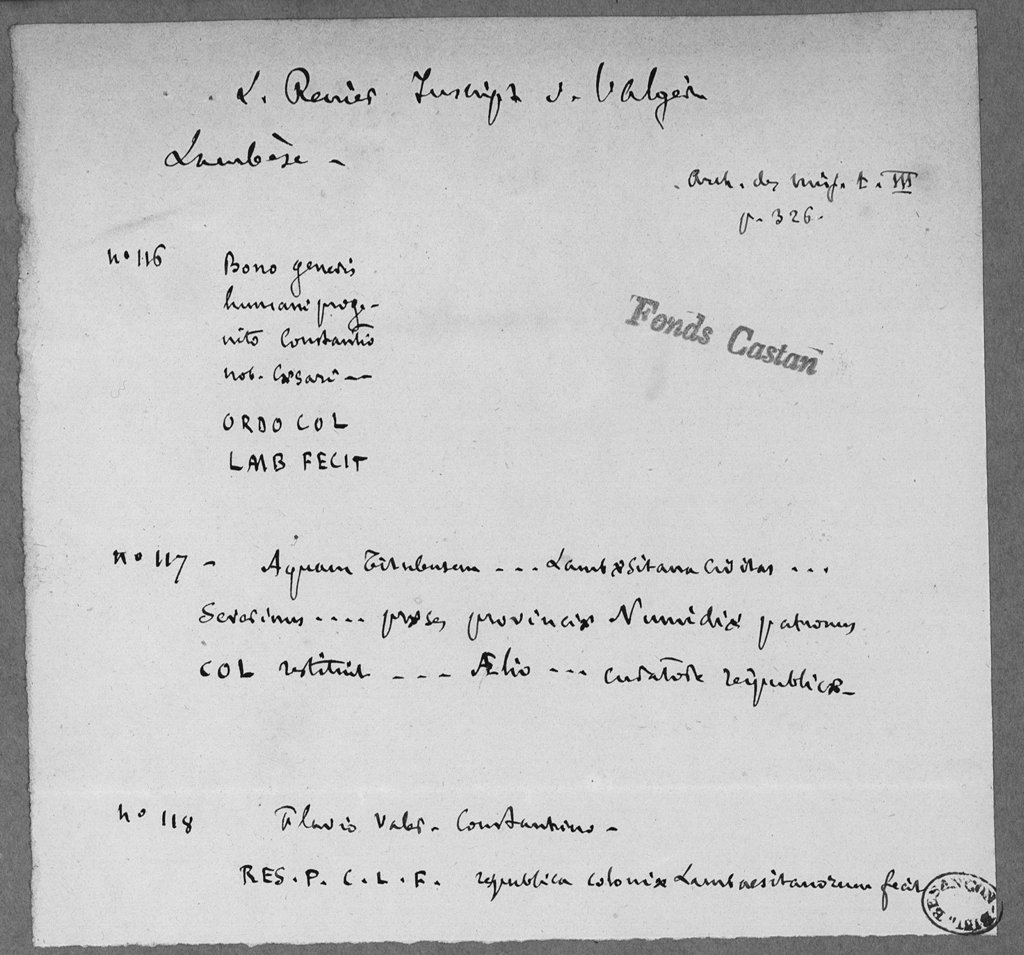 L. Renier Inscript d. l'Algérie
Lambèse -
Arch. des miss. t. III
p. 326.
n° 116
Bono generis
humani proge-
nito Constantio
nob. Cæsari —
ORDO COL
LAMB FECIT
Fonds Castan
n° 117 - Aquam Titulensem - . . Lambæsitana civitas . . .
Severinus . . . . præses provinciæ Numidiæ patronus
COL restituit - - - Ælio - - - curatore reipublicæ -
n° 118 Flavio Valer. Constantino -
RES . P. C . L . F. respublica coloniæ Lambaesitanorum fecit
BESANÇON BIBL.